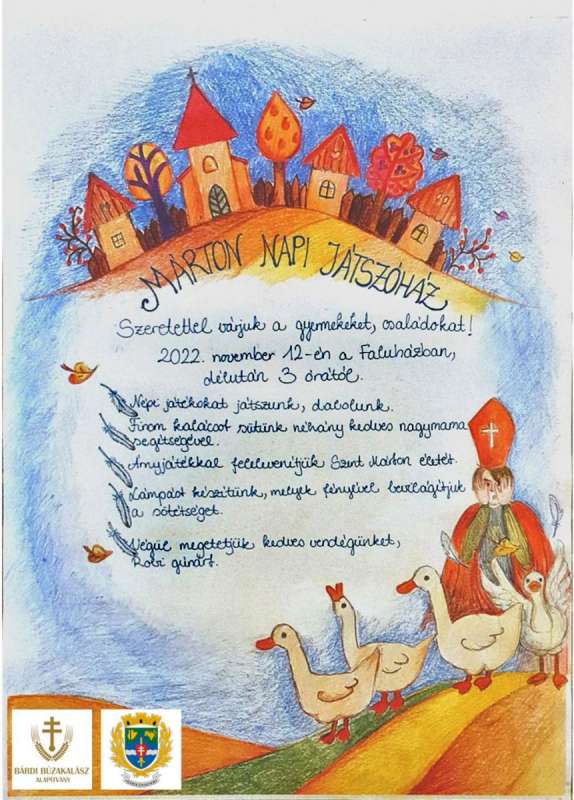 MÁRTON NAPI JÁTSZÓHÁZ
Szeretettel várjuk a gyermekeket, családokat!
2022. november 12-én a Faluházban,
délután 3 órától.
Népi játékokat játszunk, dalolunk.
Finom kalácsot sütünk néhány kedves nagymama
segítségével.
Árnyjátékkal felelevenítjük Szent Márton életét.
Lámpást készítünk, melyek fényével bevilágítjuk
a sötétséget.
Végül megetetjük kedves vendégünket,
Robi gúnárt.
BÁRDI BÚZAKALÁSZ
ALAPÍTVÁNY